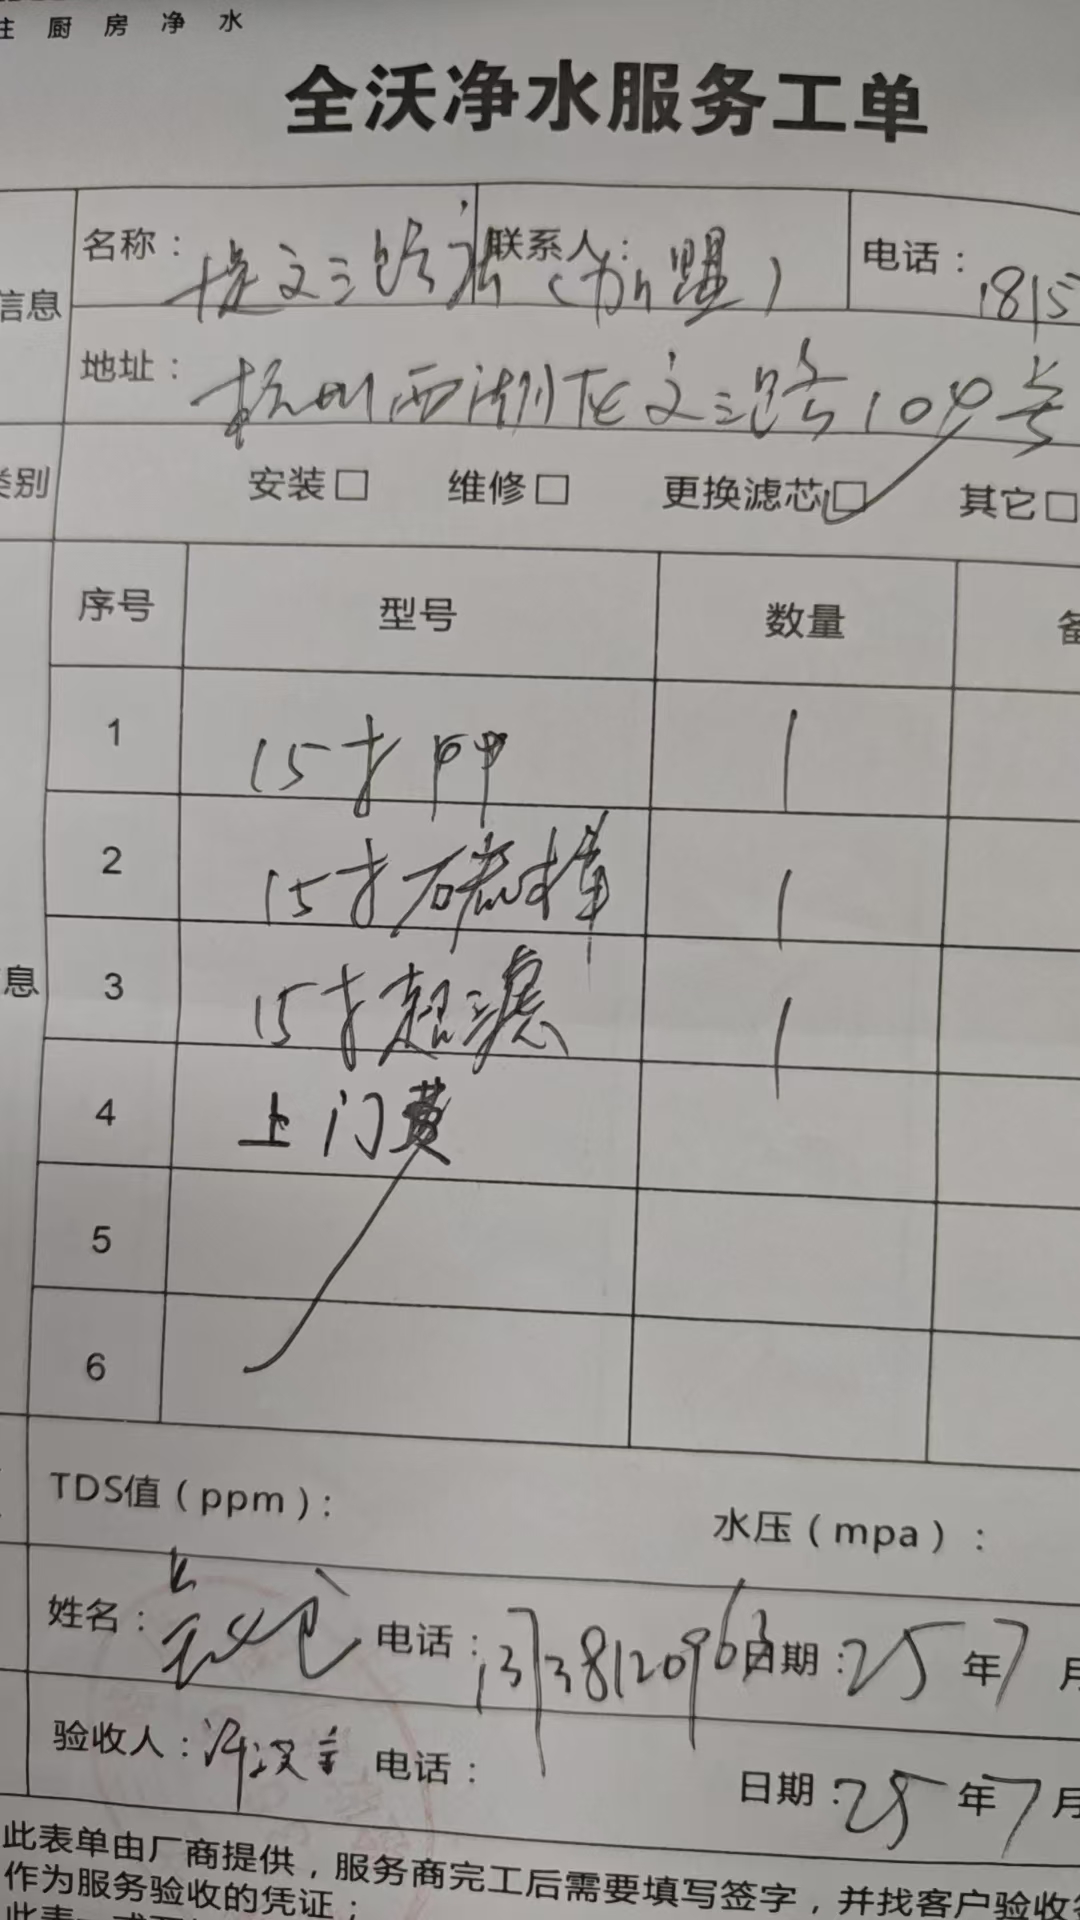 住厨房净水
全沃净水服务工单
名称： 文三路店 联系人：（加盟） 电话：1815
信息
地址：杭州西湖区文三路109号
类别 安装□ 维修□ 更换滤芯□ 其它□
序号 型号 数量 备
1 15寸PP 1
2 15寸 1
息 3 15寸超滤 1
4 上门费
5
6
TDS值（ppm）： 水压（mpa）：
姓名： 电话：13738120963 日期：25年7月
验收人： 电话： 日期：25年7月
此表单由厂商提供，服务商完工后需要填写签字，并找客户验收签
作为服务验收的凭证；